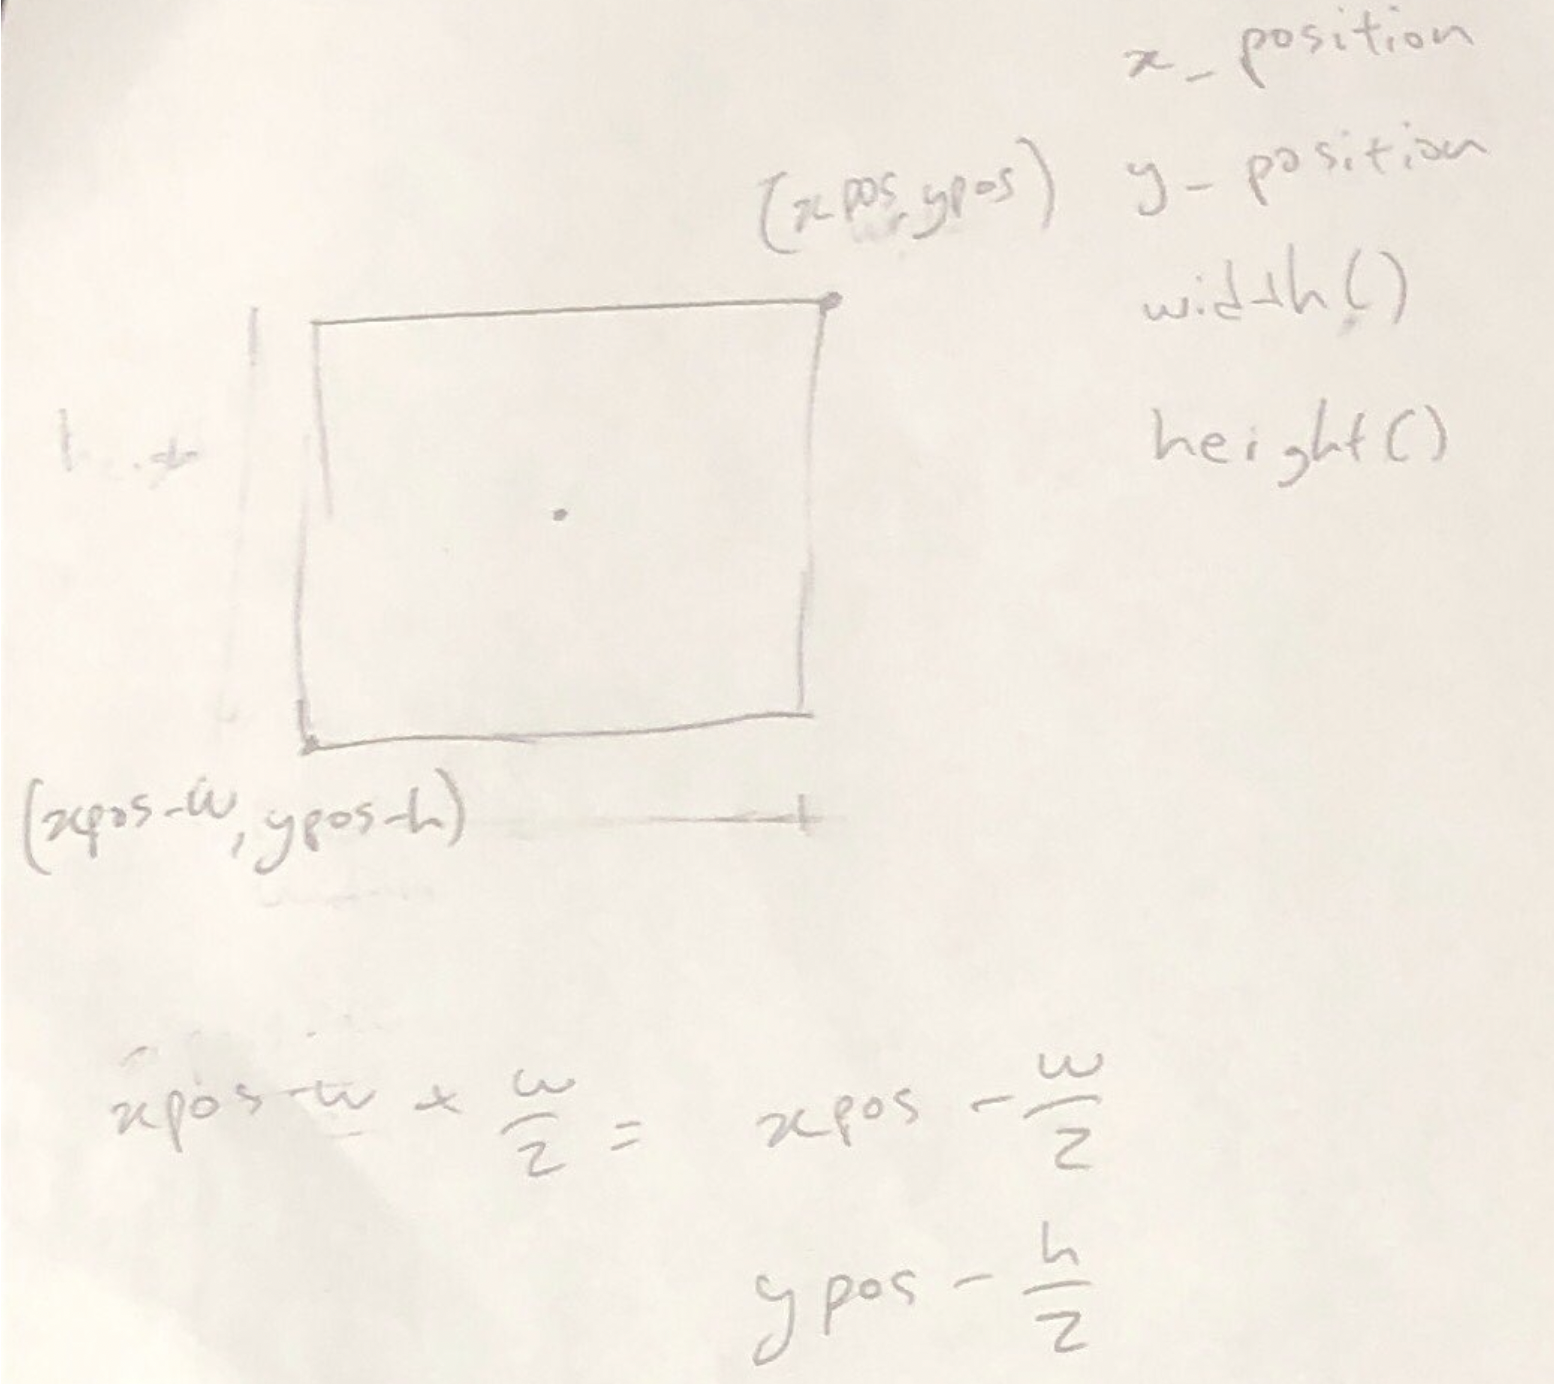 x_position
(xpos, ypos)
y-position
width()
height()
(xpos-w, ypos-h)
xpos-w + w/2 = xpos - w/2
ypos - h/2